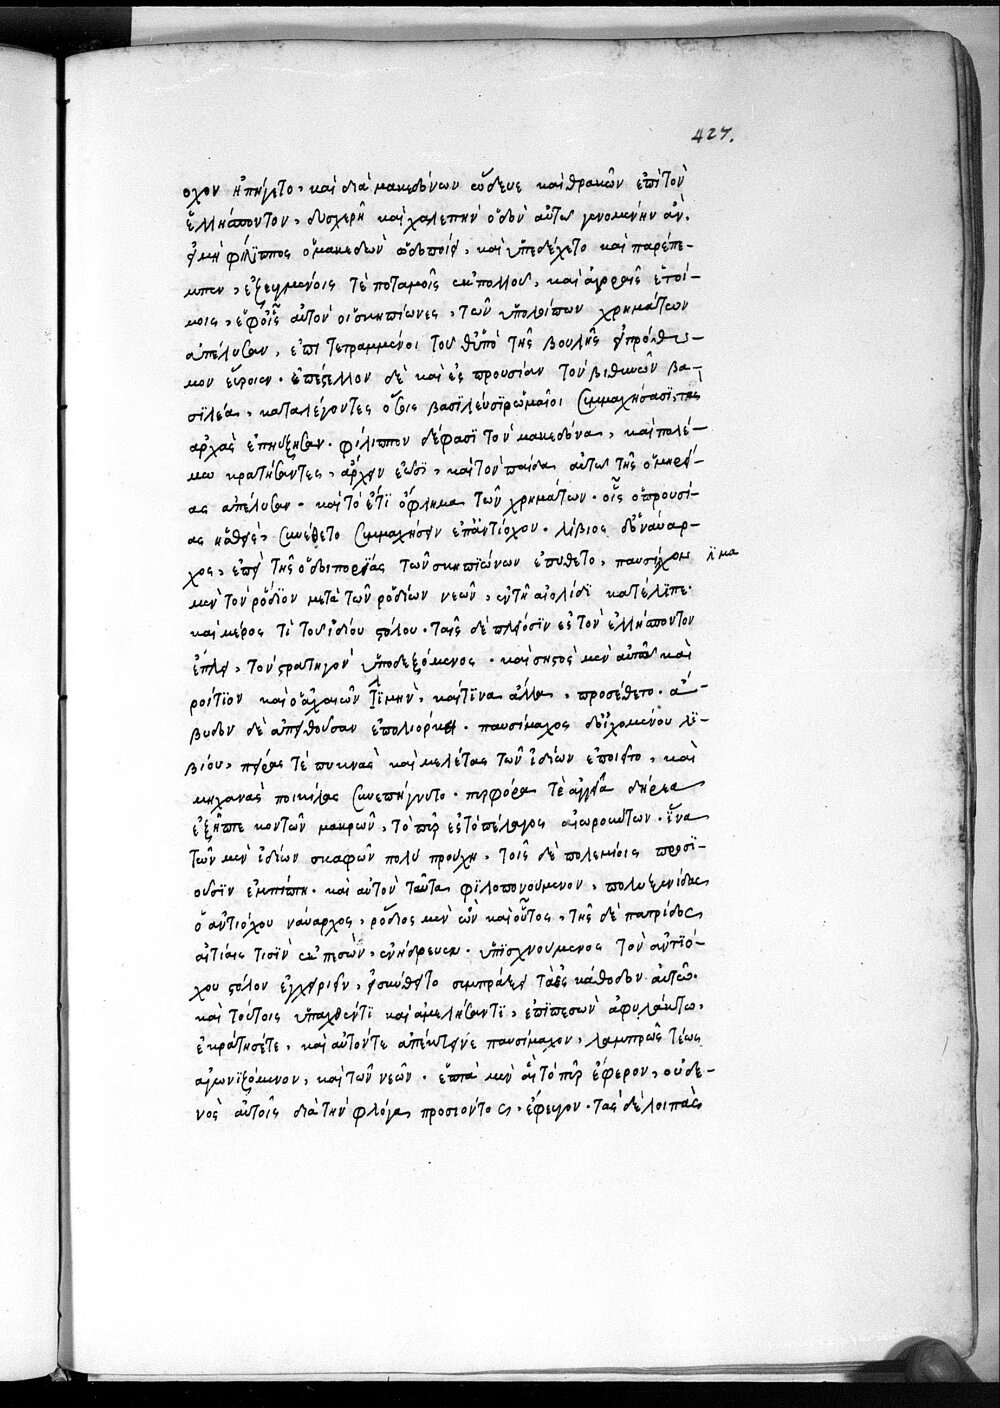 427.
οχον ἠπείγετο, καὶ διὰ μακεδόνων ὥδευε καὶ θρακῶν ἐπὶ τὸν
ἑλλήσποντον, δυσχερῆ καὶ χαλεπὴν ὁδὸν αὐτῶ γενομένην ἂν,
εἰ μὴ φίλιππος ὁ μακεδὼν ὡδοποίει, καὶ ὑπεδέχετο καὶ παρέπε-
μπεν, ἐζευγμένοις τὲ ποταμοῖς ἐκ πολλοῦ, καὶ ἀγοραῖς ἑτοί-
μοις, ἐφ' οἷς αὐτὸν οἱ σκηπίωνες, τῶν ὑπολοίπων χρημάτων
ἀπέλυσαν, ἐπιτετραμμένοι τοῦθ' ὑπὸ τῆς βουλῆς εἰ πρόθυ-
μον εὕροιεν. ἐπέστελλον δὲ καὶ ἐς προυσίαν τὸν βιθυνῶν βα-
σιλέα, καταλέγοντες ὅσοις βασιλεῦσι ῥωμαῖοι συμμαχήσασι, τὰς
ἀρχὰς ἐπηύξησαν. φίλιππον δέ φασι τὸν μακεδόνα, καὶ πολέ-
μω κρατήσαντες, ἄρχειν ἐῶσι, καὶ τὸν παῖδα αὐτῶ τῆς ὁμηρεί-
ας ἀπέλυσαν. καὶ τὸ ἔτι ὄφλημα τῶν χρημάτων. οἷς ὁ προυσί-
ας ἡσθεὶς, συνέθετο συμμαχήσειν ἐπ' ἀντίοχον. λίβιος δ' ὁ ναύαρ-
χος, ἐπεὶ τῆς ὁδοιπορίας τῶν σκηπιώνων ἐπύθετο, παυσίχον
ἱμα
μὲν τὸν ῥόδιον μετὰ τῶν ῥοδίων νεῶν, ἐν τῆ αἰολίδι κατέλιπε.
καὶ μέρος τὶ τοῦ ἰδίου στόλου. ταῖς δὲ πλείοσιν ἐς τὸν ἑλλήσποντον
ἔπλει, τὸν στρατηγὸν ὑποδεξόμενος. καὶ σηστὸς μὲν αὐτῶ καὶ
ῥοίτιον καὶ ὁ ἀχαιῶν λιμὴν, καὶ τινα ἄλλα, προσέθετο. ἄ-
βυδον δὲ ἀπειθοῦσαν ἐπολιόρκει. παυσίμαχος δ' οἰχομένου λι-
βίου, πείρας τὲ πυκνὰς καὶ μελέτας τῶν ἰδίων ἐποιεῖτο, καὶ
μηχανὰς ποικίλας συνεπήγνυτο. πυρφόρα τὲ ἀγγεῖα σιδήρεα
ἐξῆπτε κοντῶν μακρῶν, τὸ πῦρ ἐς τὸ πέλαγος αἰωροῦντων. ἵνα
τῶν μὲν ἰδίων σκαφῶν πολὺ προύχη, τοῖς δὲ πολεμίοις προσι-
οῦσιν ἐμπίπτη. καὶ αὐτὸν ταῦτα φιλοπονούμενον, πολυξενίδας
ὁ ἀντιόχου ναύαρχος, ῥόδιος μὲν ὢν καὶ οὗτος, τῆς δὲ πατρίδος
αἰτίαις τισὶν ἐκπεσὼν, ἐνήδρευεν. ὑπισχνούμενος τὸν ἀντιό-
χου στόλον ἐγχειριεῖν, εἰ συνθεῖτο συμπράξειν τὰ ἐς κάθοδον αὐτῶ.
καὶ τούτοις ὑπαχθέντι καὶ ἀμελήσαντι, ἐπιπεσὼν ἀφυλάκτω,
ἐκράτησέτε, καὶ αὐτόντε ἀπέκτεινε παυσίμαχον, λαμπρῶς τέως
ἀγωνιζόμενον, καὶ τῶν νεῶν. ἑπτὰ μὲν αἳ τὸ πῦρ ἔφερον, οὐδε-
νὸς αὐτοῖς διὰ τὴν φλόγα προσιόντος, ἔφευγον. τὰς δὲ λοιπὰς